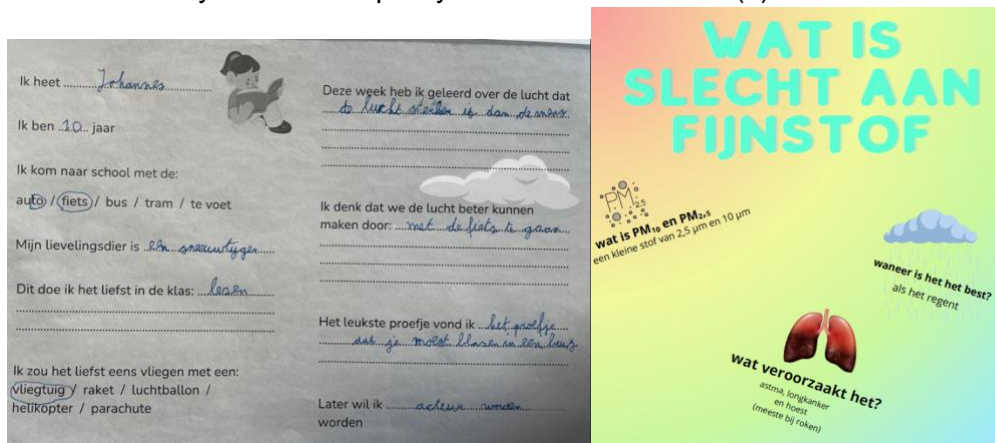 Ik heet Johannes
Ik ben 10 jaar
Ik kom naar school met de:
auto / fiets / bus / tram / te voet
Mijn lievelingsdier is een sneeuwtijger
Dit doe ik het liefst in de klas: lezen
Ik zou het liefst eens vliegen met een:
vliegtuig / raket / luchtballon /
helikopter / parachute
Deze week heb ik geleerd over de lucht dat
de lucht sterker is dan de mens
Ik denk dat we de lucht beter kunnen
maken door: met de fiets te gaan
Het leukste proefje vond ik het proefje
dat je moest blazen in een
Later wil ik acteur worden
worden
WAT IS
SLECHT AAN
FIJNSTOF
PM2,5
wat is PM₁₀ en PM₂,₅
een kleine stof van 2,5 μm en 10 μm
waneer is het het best?
als het regent
wat veroorzaakt het?
astma, longkanker
en hoest
(meeste bij roken)